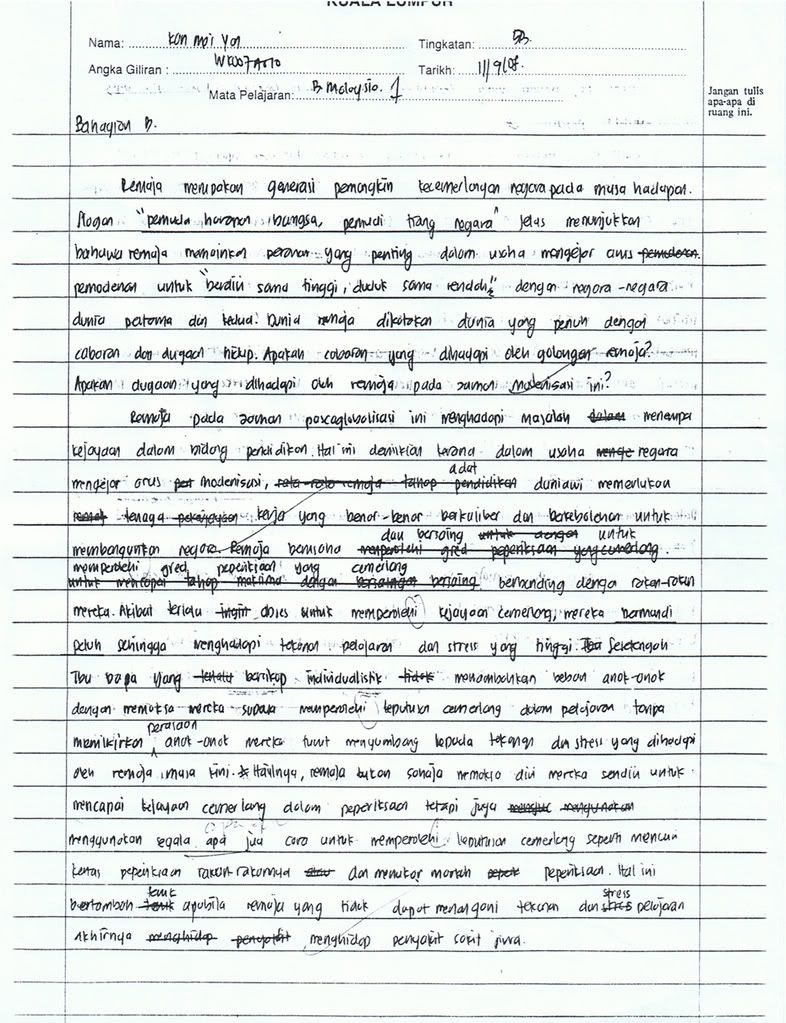 KUALA LUMPUR
Nama: Kan mai yan Tingkatan: 5B
Angka Giliran: WK007A110 Tarikh: 1/9/08.
Mata Pelajaran: B Malaysia. 1
Jangan tulis
apa-apa di
ruang ini.
Bahagian B.
Remaja merupakan generasi pemangkin kecemerlangan negara pada masa hadapan.
Slogan "pemuda harapan bangsa, pemudi tiang negara" jelas menunjukkan
bahawa remaja memainkan peranan yang penting dalam usaha mengejar arus pemodenan
pemodenan untuk "berdiri sama tinggi, duduk sama rendah" dengan negara-negara
dunia pertama dan kedua. Dunia remaja dikatakan dunia yang penuh dengan
cabaran dan dugaan hidup. Apakah cabaran yang dihadapi oleh golongan remaja?
Apakah dugaan yang dihadapi oleh remaja pada zaman modenisasi ini?
Remaja pada zaman pascaglobalisasi ini menghadapi masalah dalam menempa
kejayaan dalam bidang pendidikan. Hal ini demikian kerana dalam usaha menge negara
mengejar arus modenisasi, rata-rata remaja tahap pendidikan adat duniawi memerlukan
tenaga pekerjaan kerja yang benar-benar berkaliber dan berkebolehan untuk
membangunkan negara. Remaja berusaha memperolehi gred peperiksaan yang cemerlang. dan bersaing untuk dengan untuk
memperolehi gred peperiksaan yang cemerlang
untuk mencapai tahap maksima dengan bersaingan bersaing berbanding dengan rakan-rakan
mereka. Akibat terlalu ingin obses untuk memperolehi kejayaan cemerlang, mereka bermandi
peluh sehingga menghadapi tekanan pelajaran dan stress yang tinggi. Ibu Setengah
Ibu bapa yang terlalu bersikap individualistik tidak menambahkan beban anak-anak
dengan memaksa mereka supaya memperolehi keputusan cemerlang dalam pelajaran tanpa
memikirkan perasaan anak-anak mereka turut menyumbang kepada tekanan dan stress yang dihadapi
oleh remaja masa kini. Hasilnya, remaja bukan sahaja memaksa diri mereka sendiri untuk
mencapai kejayaan cemerlang dalam peperiksaan tetapi juga mengunakan
menggunakan segala apa jua cara untuk memperolehi keputusan cemerlang seperti mencuri
kertas peperiksaan rakan-rakannya atau dan menukar markah peperiksaan. Hal ini
bertambah teruk apabila remaja yang tidak dapat menangani tekanan dan stress pelajaran
akhirnya menghidap penyakit menghidap penyakit sakit jiwa.